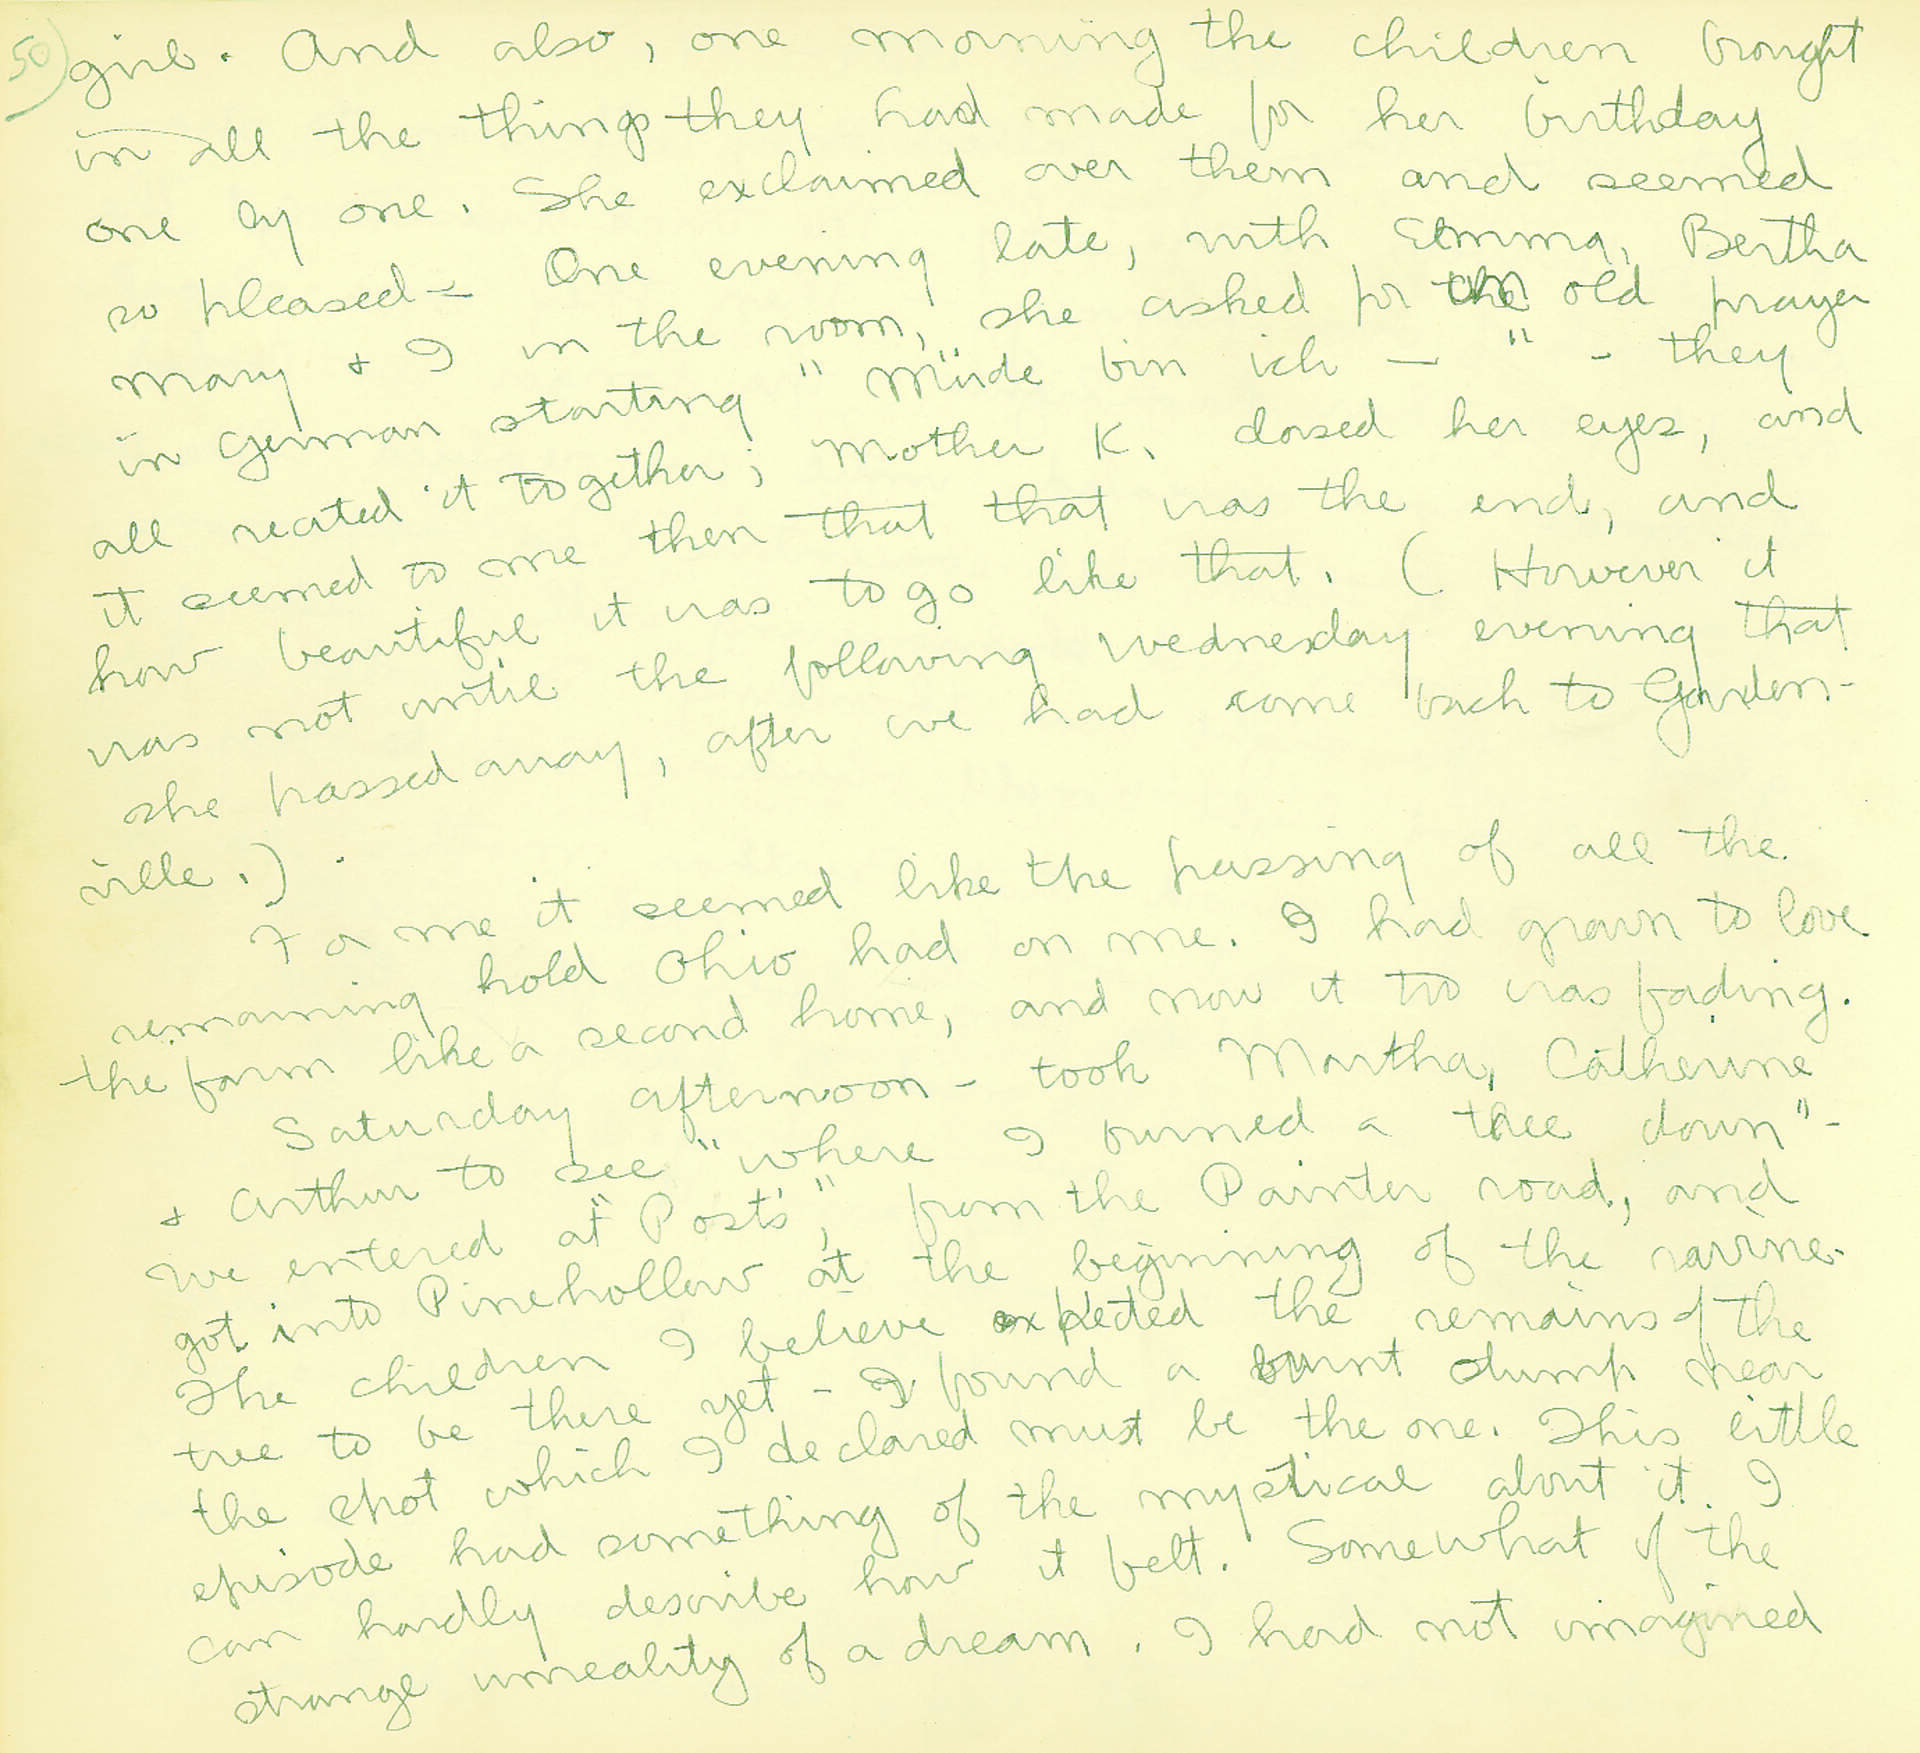 50) girl. And also, one morning the children brought
in all the things they had made for her birthday
one by one. She exclaimed over them and seemed
so pleased - One evening late, with Emma, Bertha
Mary & I in the room, she asked for an old prayer
in German starting "Müde bin ich — " - they
all recited it together; Mother K. closed her eyes, and
it seemed to me then that that was the end, and
how beautiful it was to go like that. (However it
was not until the following Wednesday evening that
she passed away, after we had come back to Garden-
ville.)
For me it seemed like the passing of all the
remaining hold Ohio had on me. I had grown to love
the farm like a second home, and now it too was fading.
Saturday afternoon - took Martha, Catherine
& Arthur to see "where I burned a tree down" -
We entered at "Post's", from the Painter road, and
got into Pinehollow at the beginning of the ravine.
The children I believe expected the remains of the
tree to be there yet - I found a burnt stump near
the spot which I declared must be the one. This little
episode had something of the mystical about it. I
can hardly describe how it felt. Somewhat of the
strange unreality of a dream. I had not imagined